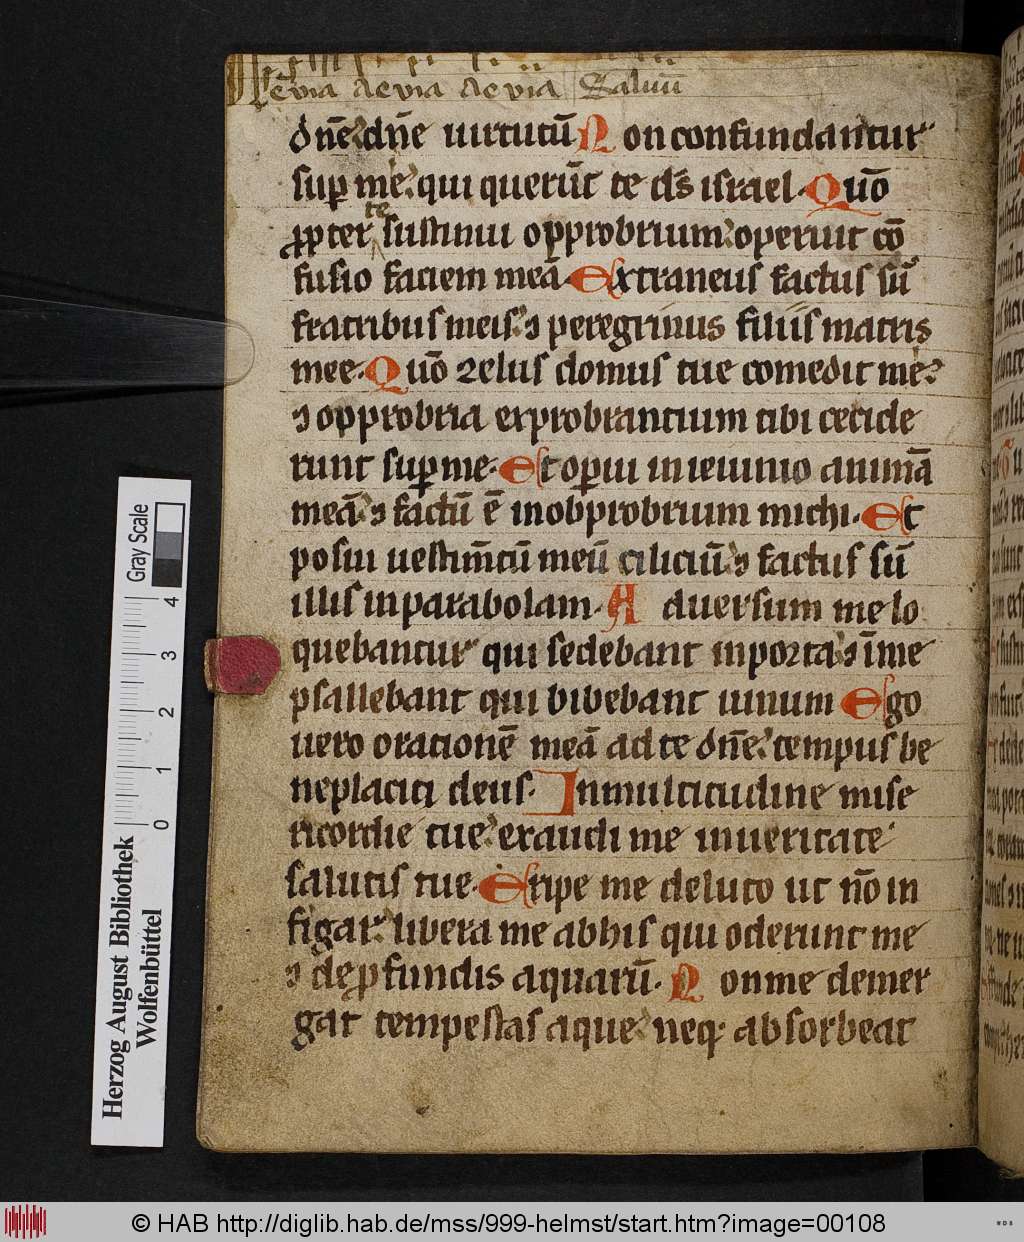 evia aevia aevia Saluū
dn̄e dn̄e uirtutū Non confundantur
sup me qui querūt te ds̄ israel. Quō
ꝓpter te sustinui opprobrium operuit cō
fusio faciem meā. Extraneus factus sū
fratribus meis ⁊ peregrinus filiis matris
mee. Quō zelus domus tue comedit me
⁊ opprobria exprobrantium tibi cecide
runt suꝑ me. Et oꝑui in ieiunio animā
meā ⁊ factū ē in obprobrium michi. Et
posui uestim̄tū meū ciliciū ⁊ factus sū
illis in parabolam. Aduersum me lo
quebantur qui sedebant in porta ⁊ ī me
psallebant qui bibebant uinum Ego
uero orationē meā ad te dn̄e tempus be
neplaciti deus. In multitudine mise
ricordie tue exaudi me in ueritate
salutis tue. Eripe me de luto ut nō in
figar libera me ab his qui oderunt me
⁊ de ꝓfundis aquarū. Non me demer
gat tempestas aque neqꝫ absorbeat
Herzog August Bibliothek
Wolfenbüttel
Gray Scale
0 1 2 3 4
© HAB http://diglib.hab.de/mss/999-helmst/start.htm?image=00108